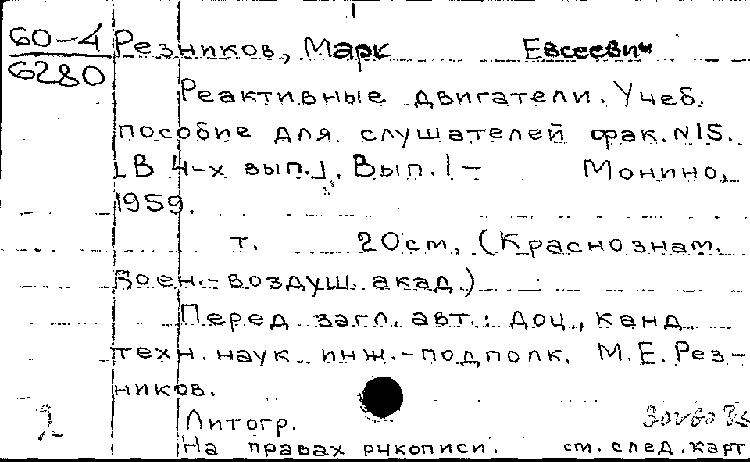 60-4 Резников, Марк Евсеевич
6280
Реактивные двигатели. Учеб.
пособие для слушателей фак. N 15.
[В 4-х вып.]. Вып. 1- Монино,
1959.
т. 20см. (Краснознам.
Воен.-воздуш. акад.)
Перед загл. авт.: доц., канд
техн. наук инж.-подполк. М.Е. Рез-
ников.
Литогр.
На правах рукописи. см. след. карт